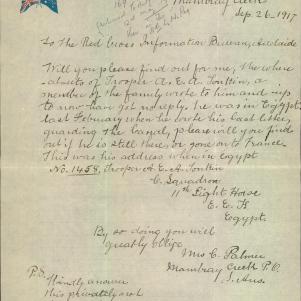 Mambray Creek
Sep. 26 - 1917
To The Red Cross Information Bureau, Adelaide
Will you please find out for me, the where
abouts of Trooper A. E. A. Tonkin, a
member of the family wrote to him and up
to now have got no reply. he was in Egypt
last February when he wrote his last letter,
guarding the Canal, please will you find
out if he is still there, or gone on to France.
This was his address when in Egypt
No. 1458, Trooper A. E. A. Tonkin
C. Squadron
11th Light Horse
E. E. F.
Egypt.
By so doing you will
greatly oblige
Mrs C. Palmer
Mambray Creek P.O.
S. Aus.
P.S.
Kindly answer
this privately